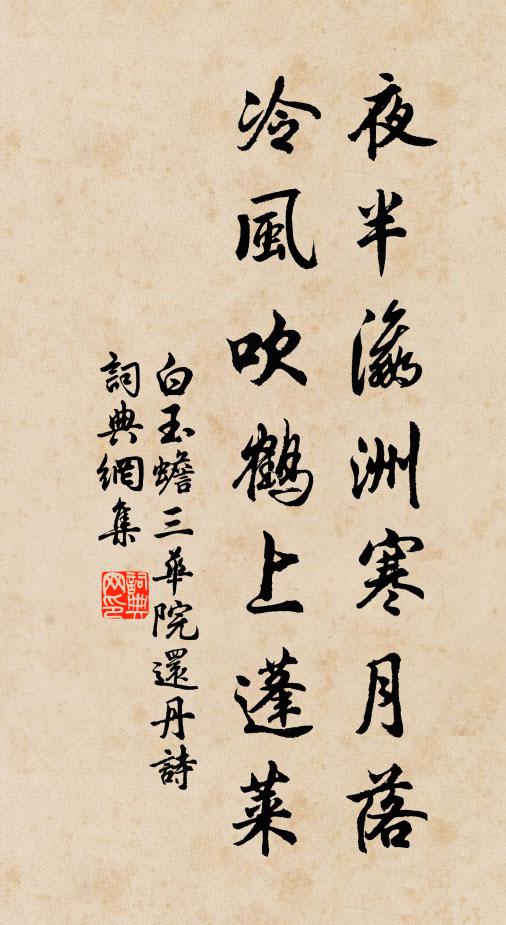 夜半瀛洲寒月落
冷風吹鶴上蓬萊
白玉蟾三華院還丹詩
詞典網集
詞典网印